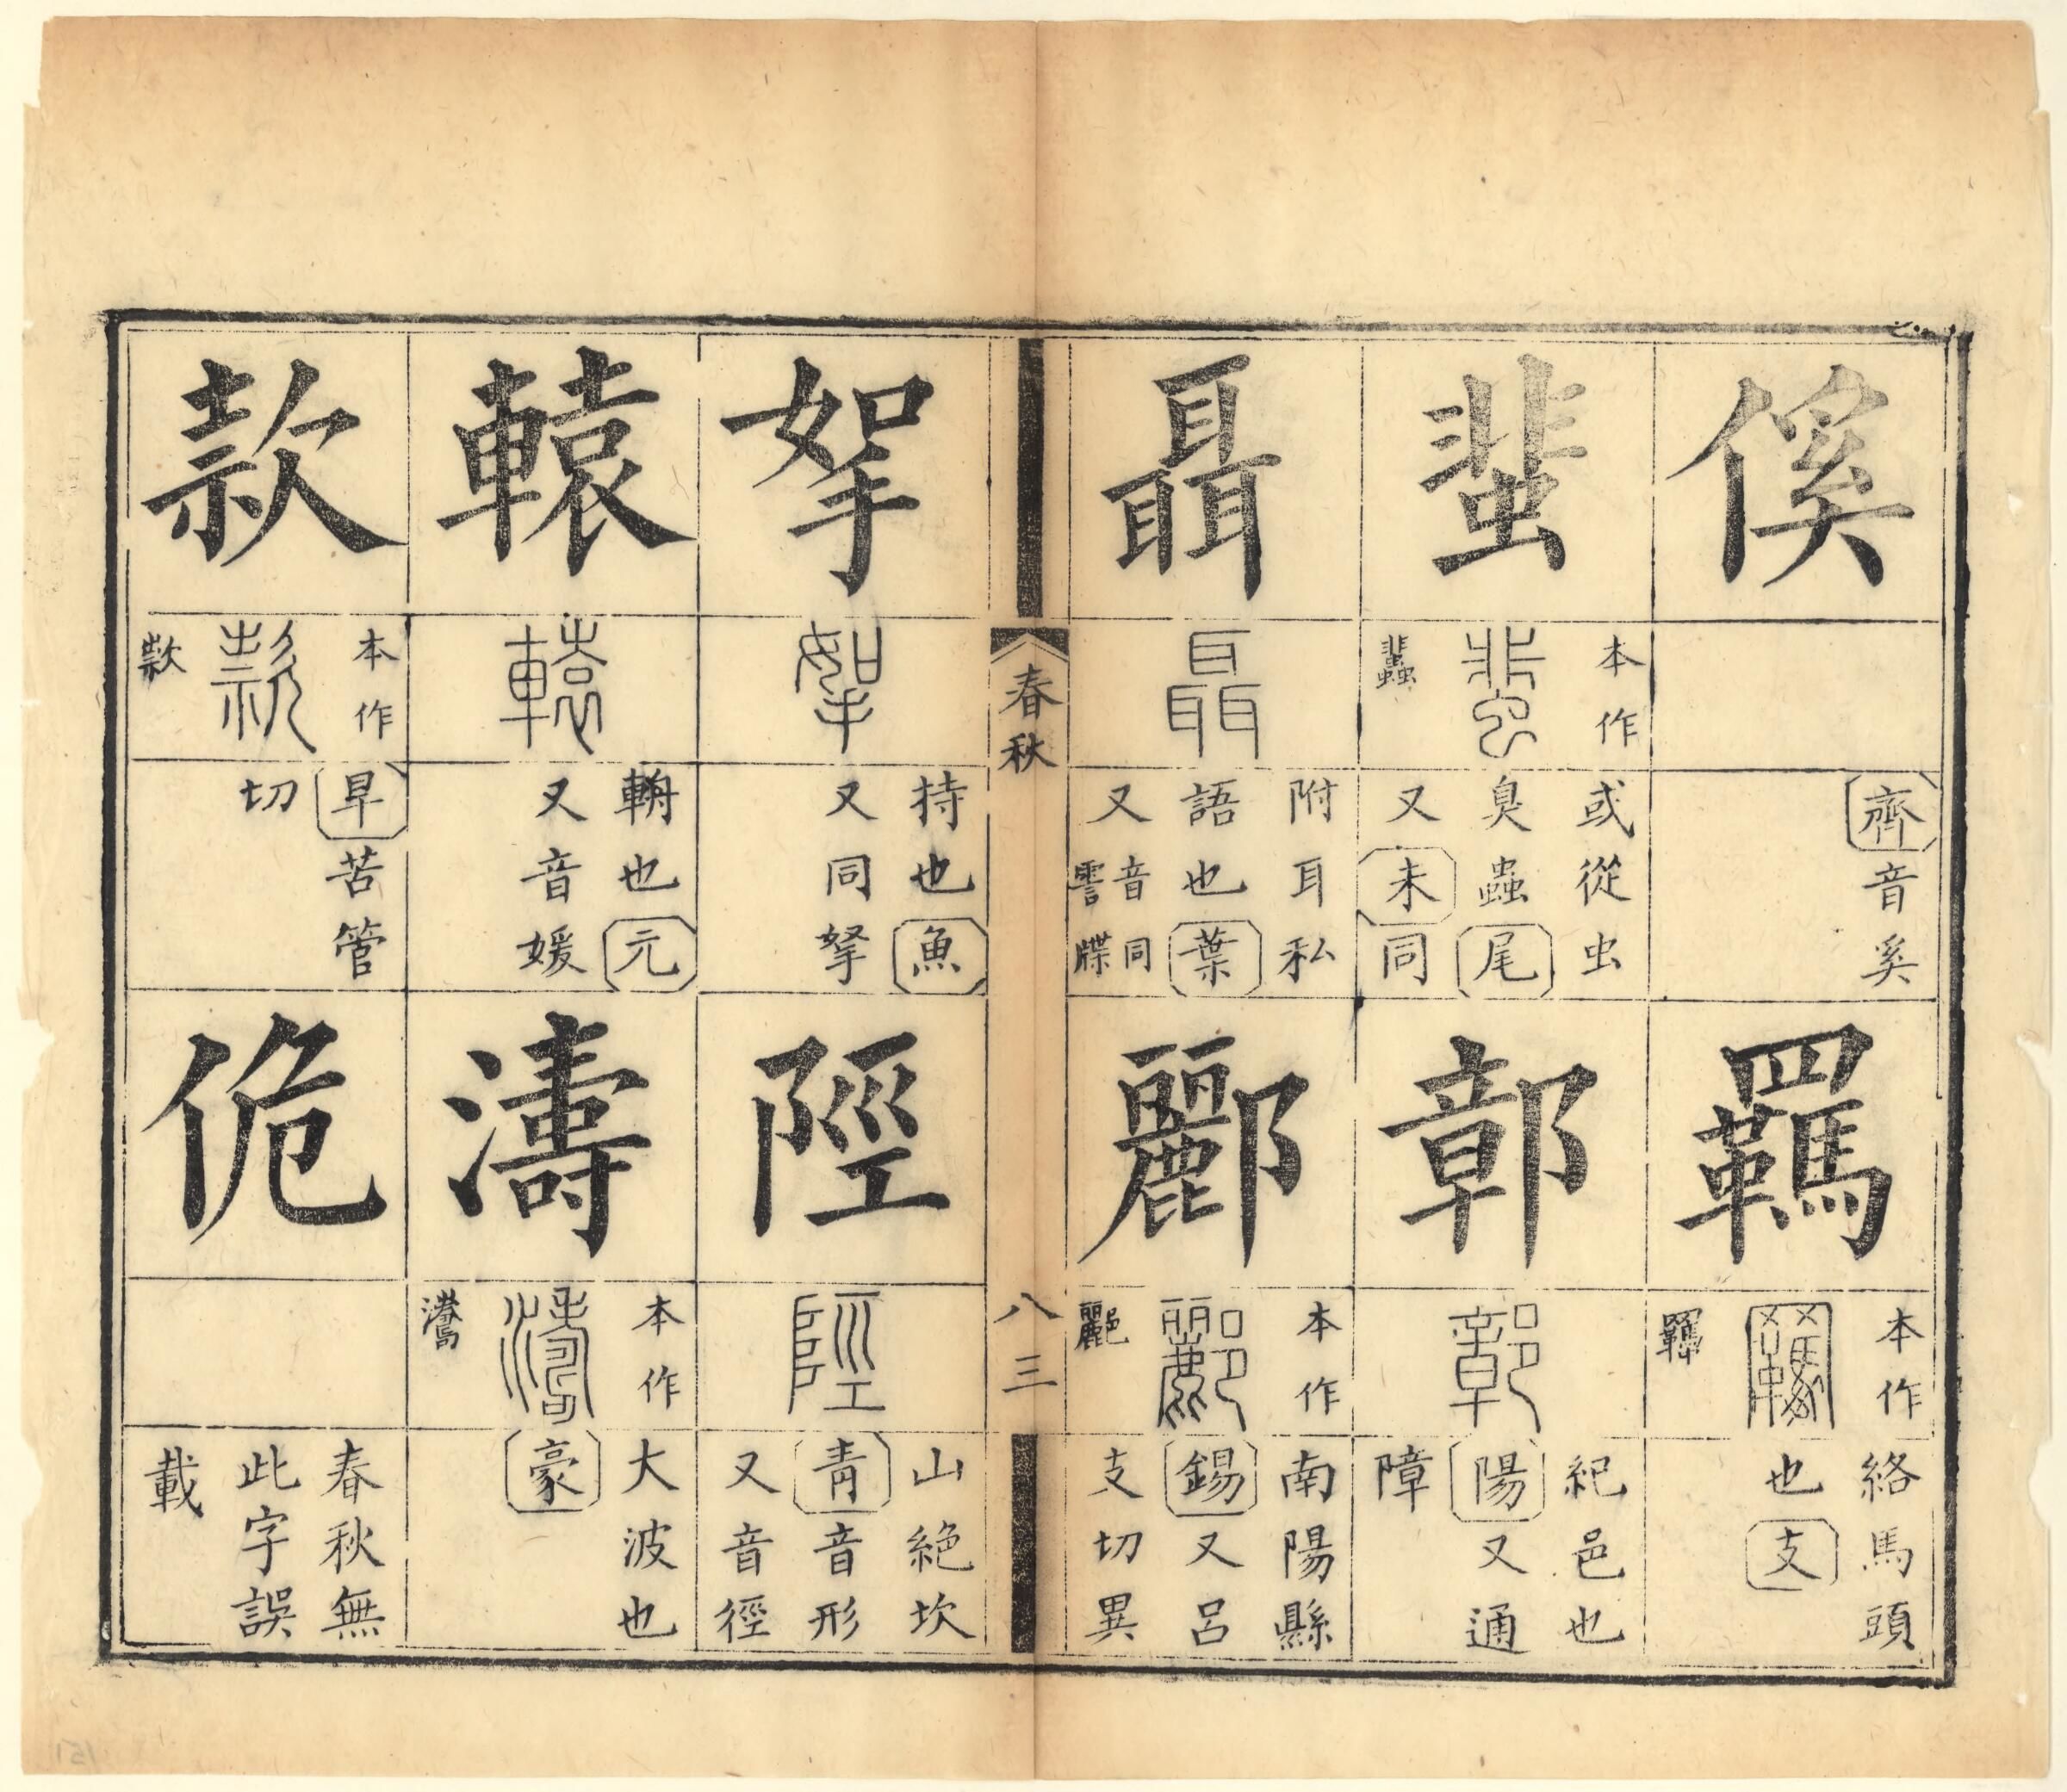 傒
齊音奚
羈
本作
羈
絡馬頭
也支
蜚
本作
蜚
蠹
或從虫
臭蟲尾
又未同
鄣
鄣
紀邑也
陽又通
障
聶
聶
附耳私
語也葉
又音同
牒
酈
本作
酈
南陽縣
錫又呂
支切異
春秋
八三
挐
挐
持也魚
又同拏
陘
陘
山絕坎
青音形
又音徑
轅
轅
輈也元
又音媛
濤
本作
濤
大波也
豪
款
本作
款
早苦管
切
佹
春秋無
此字誤
載